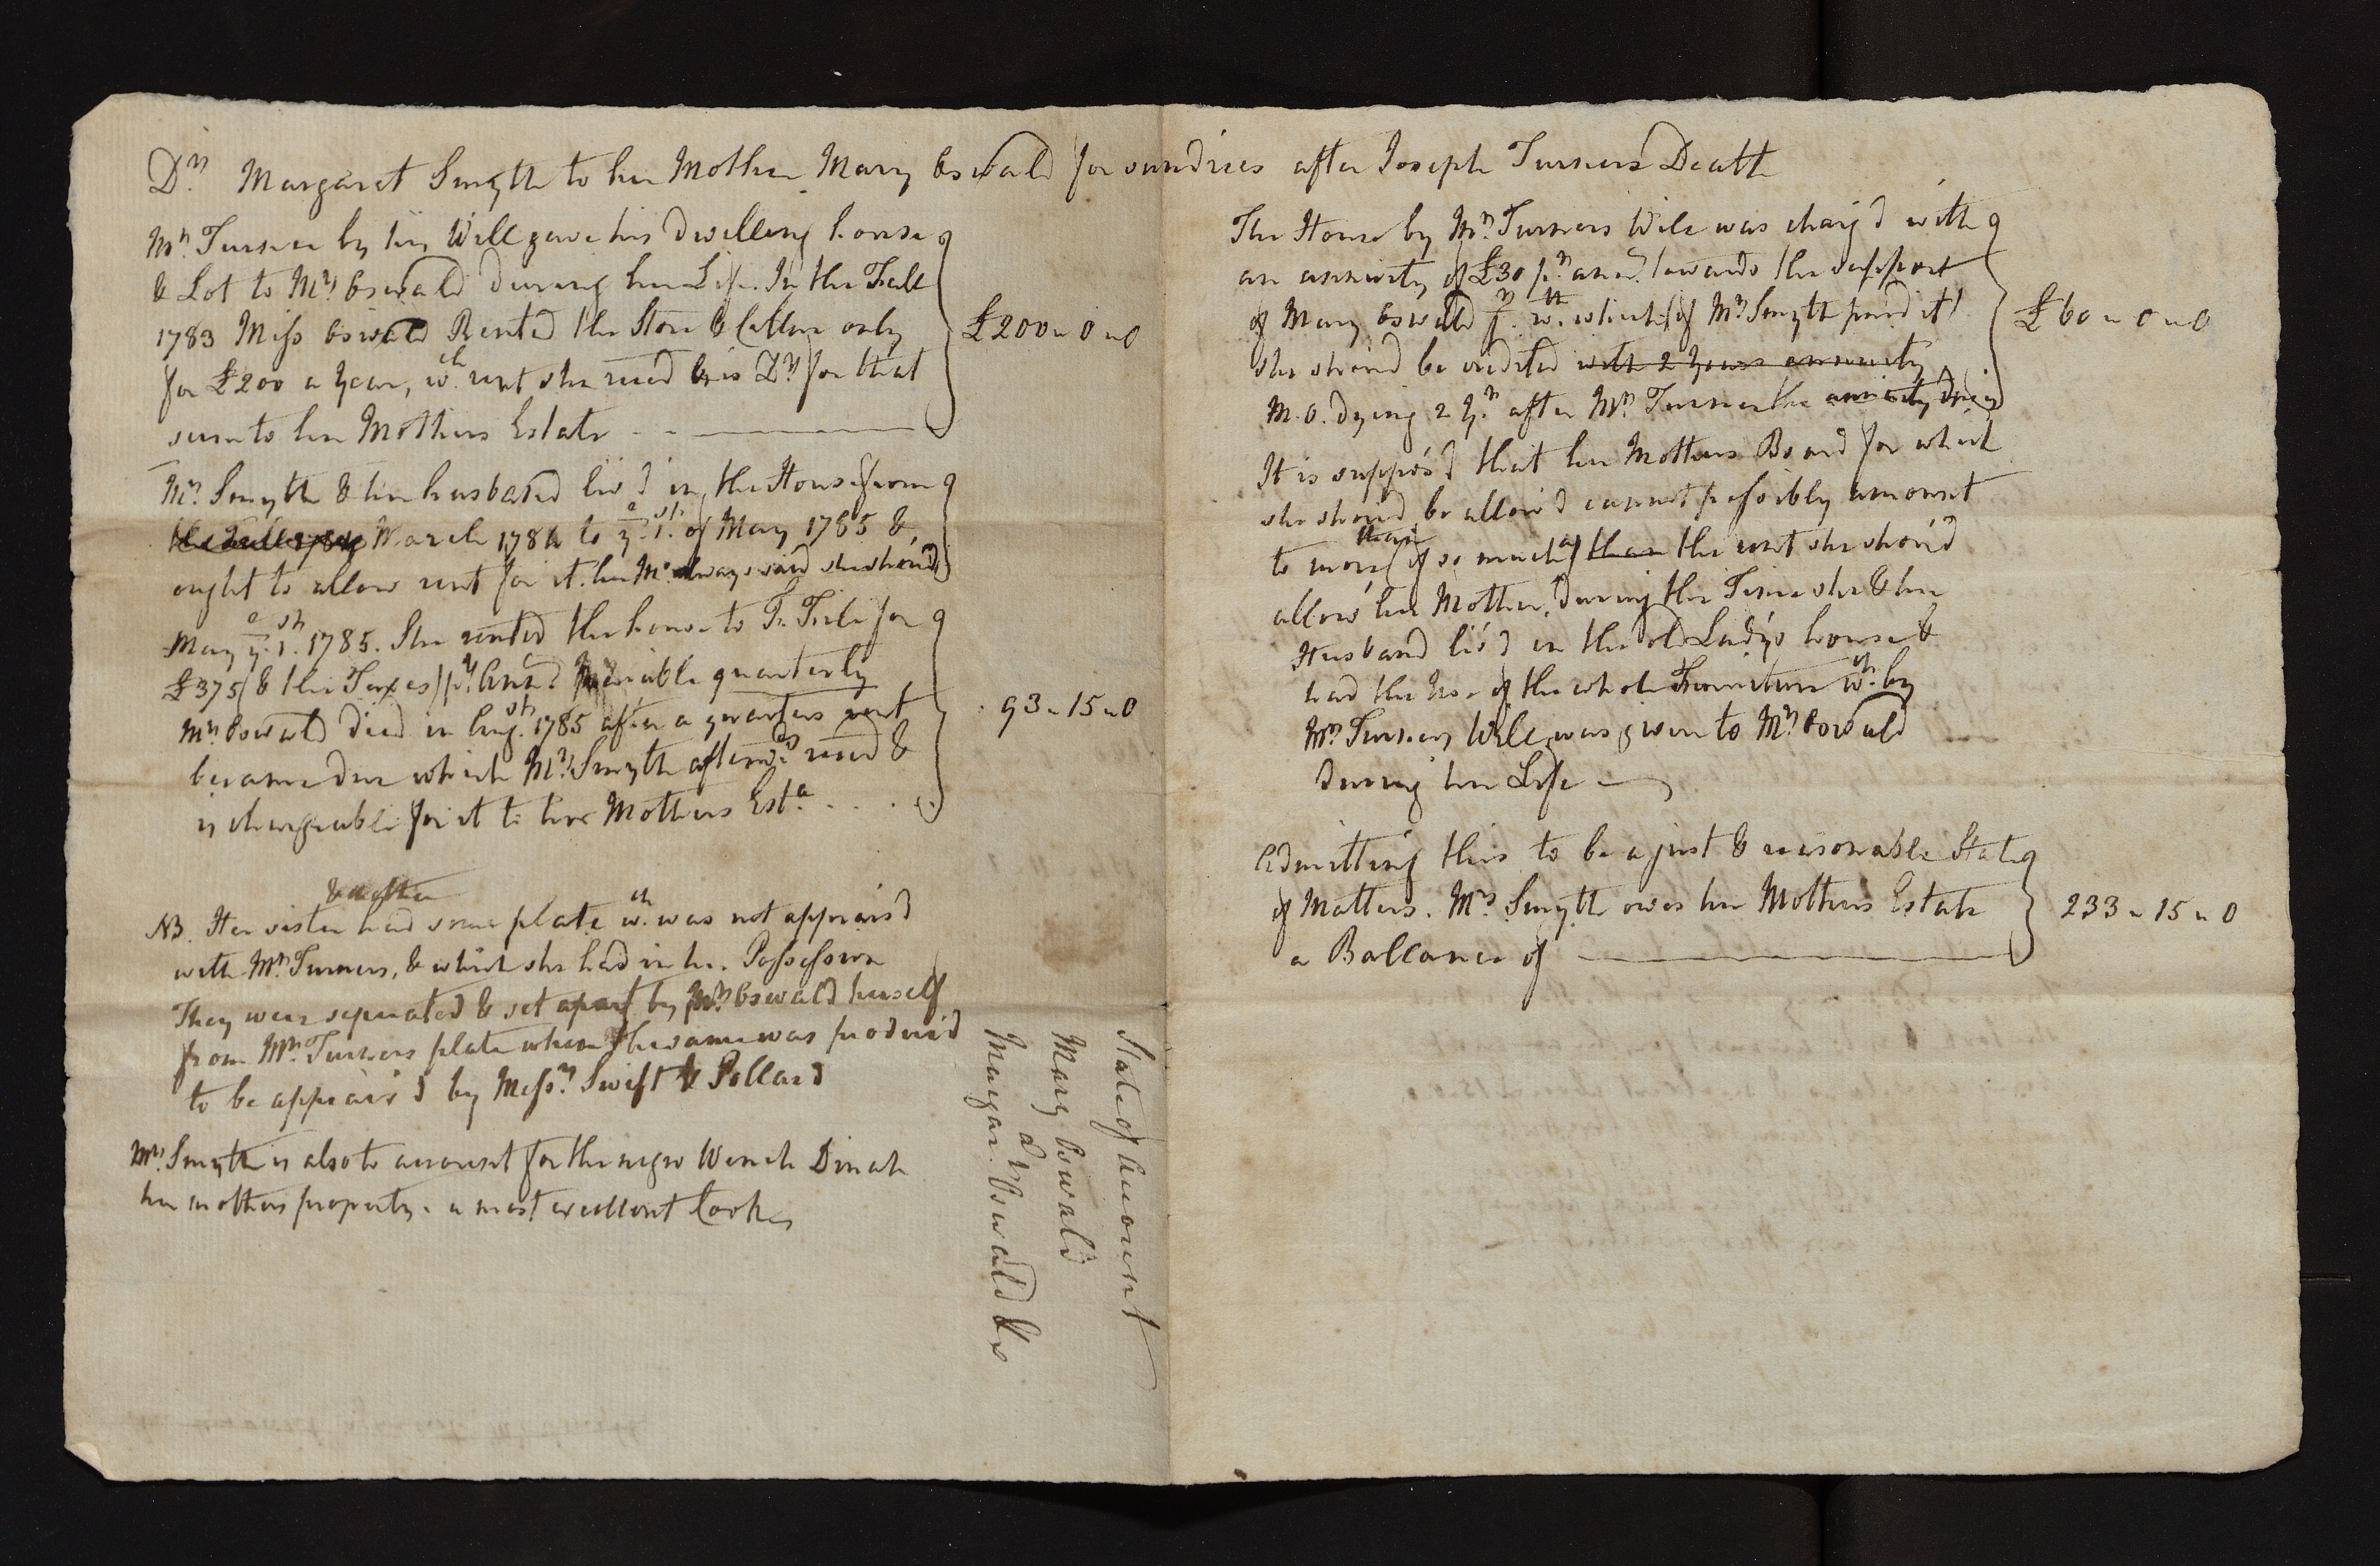 Dr. Margaret Smyth to her Mother Mary Oswald for sundries after Joseph Turners Death
Mr. Turner by his Will gave his dwelling house
& Lot to Mrs Oswald during her Life. In the Fall
1783 Miss Oswald Rented the Store & Cellar only
for £200 a year, wch. rent she recd & is Dr. for that
sum to her Mothers Estate
£200 " 0 " 0
Mrs. Smyth & her husband liv'd in the House from
March 1784 to ye. 1st. of May 1785 &
ought to allow rent for it. her Mr. always said she shou'd
May ye. 1st. 1785. She rented the house to for
£375 (& the Taxes) pr. Ann. quarterly
Mrs. Oswald died in Augst. 1785 after a quarters rent
became due which Mrs. Smyth afterwds. recd &
is chargeable for it to her Mothers Esta.
93 " 15 " 0
NB. Her sister had some plate wch. was not apprais'd
with Mr. Turners, & which she had in her Possession
They were separated & set apart by Mrs. Oswald herself
from Mr. Turners plate when the same was produc'd
to be apprais'd by Messrs. Swift & Pollard
Mrs. Smyth is also to account for the negro Wench Dinah
her mothers property. a most excellent Cook
State of Account
Mary Oswald
&
Margar. Oswald &c
The House by Mr. Turners Will was charg'd with
an annuity of £30 pr. ann. towards the support
of Mary Oswald which (if Mrs. Smyth paid it)
she shoud be credited with 2 years annuity
M. O. dying 2 yrs. after Mr. Turner the annuity
£60 " 0 " 0
It is suppos'd that her Mothers Board for which
she shoud be allow'd cannot possibly amount
to more than (if so much as) than the rent she shou'd
allow her Mother, during the Time she & her
Husband liv'd in the old Lady's house &
had the use of the whole Furniture wch. by
Mr. Turners Will was given to Mrs. Oswald
during her Life
Admitting this to be a just & reasonable State
of Matters. Mrs. Smyth owes her Mothers Estate
a Ballance of
233 " 15 " 0